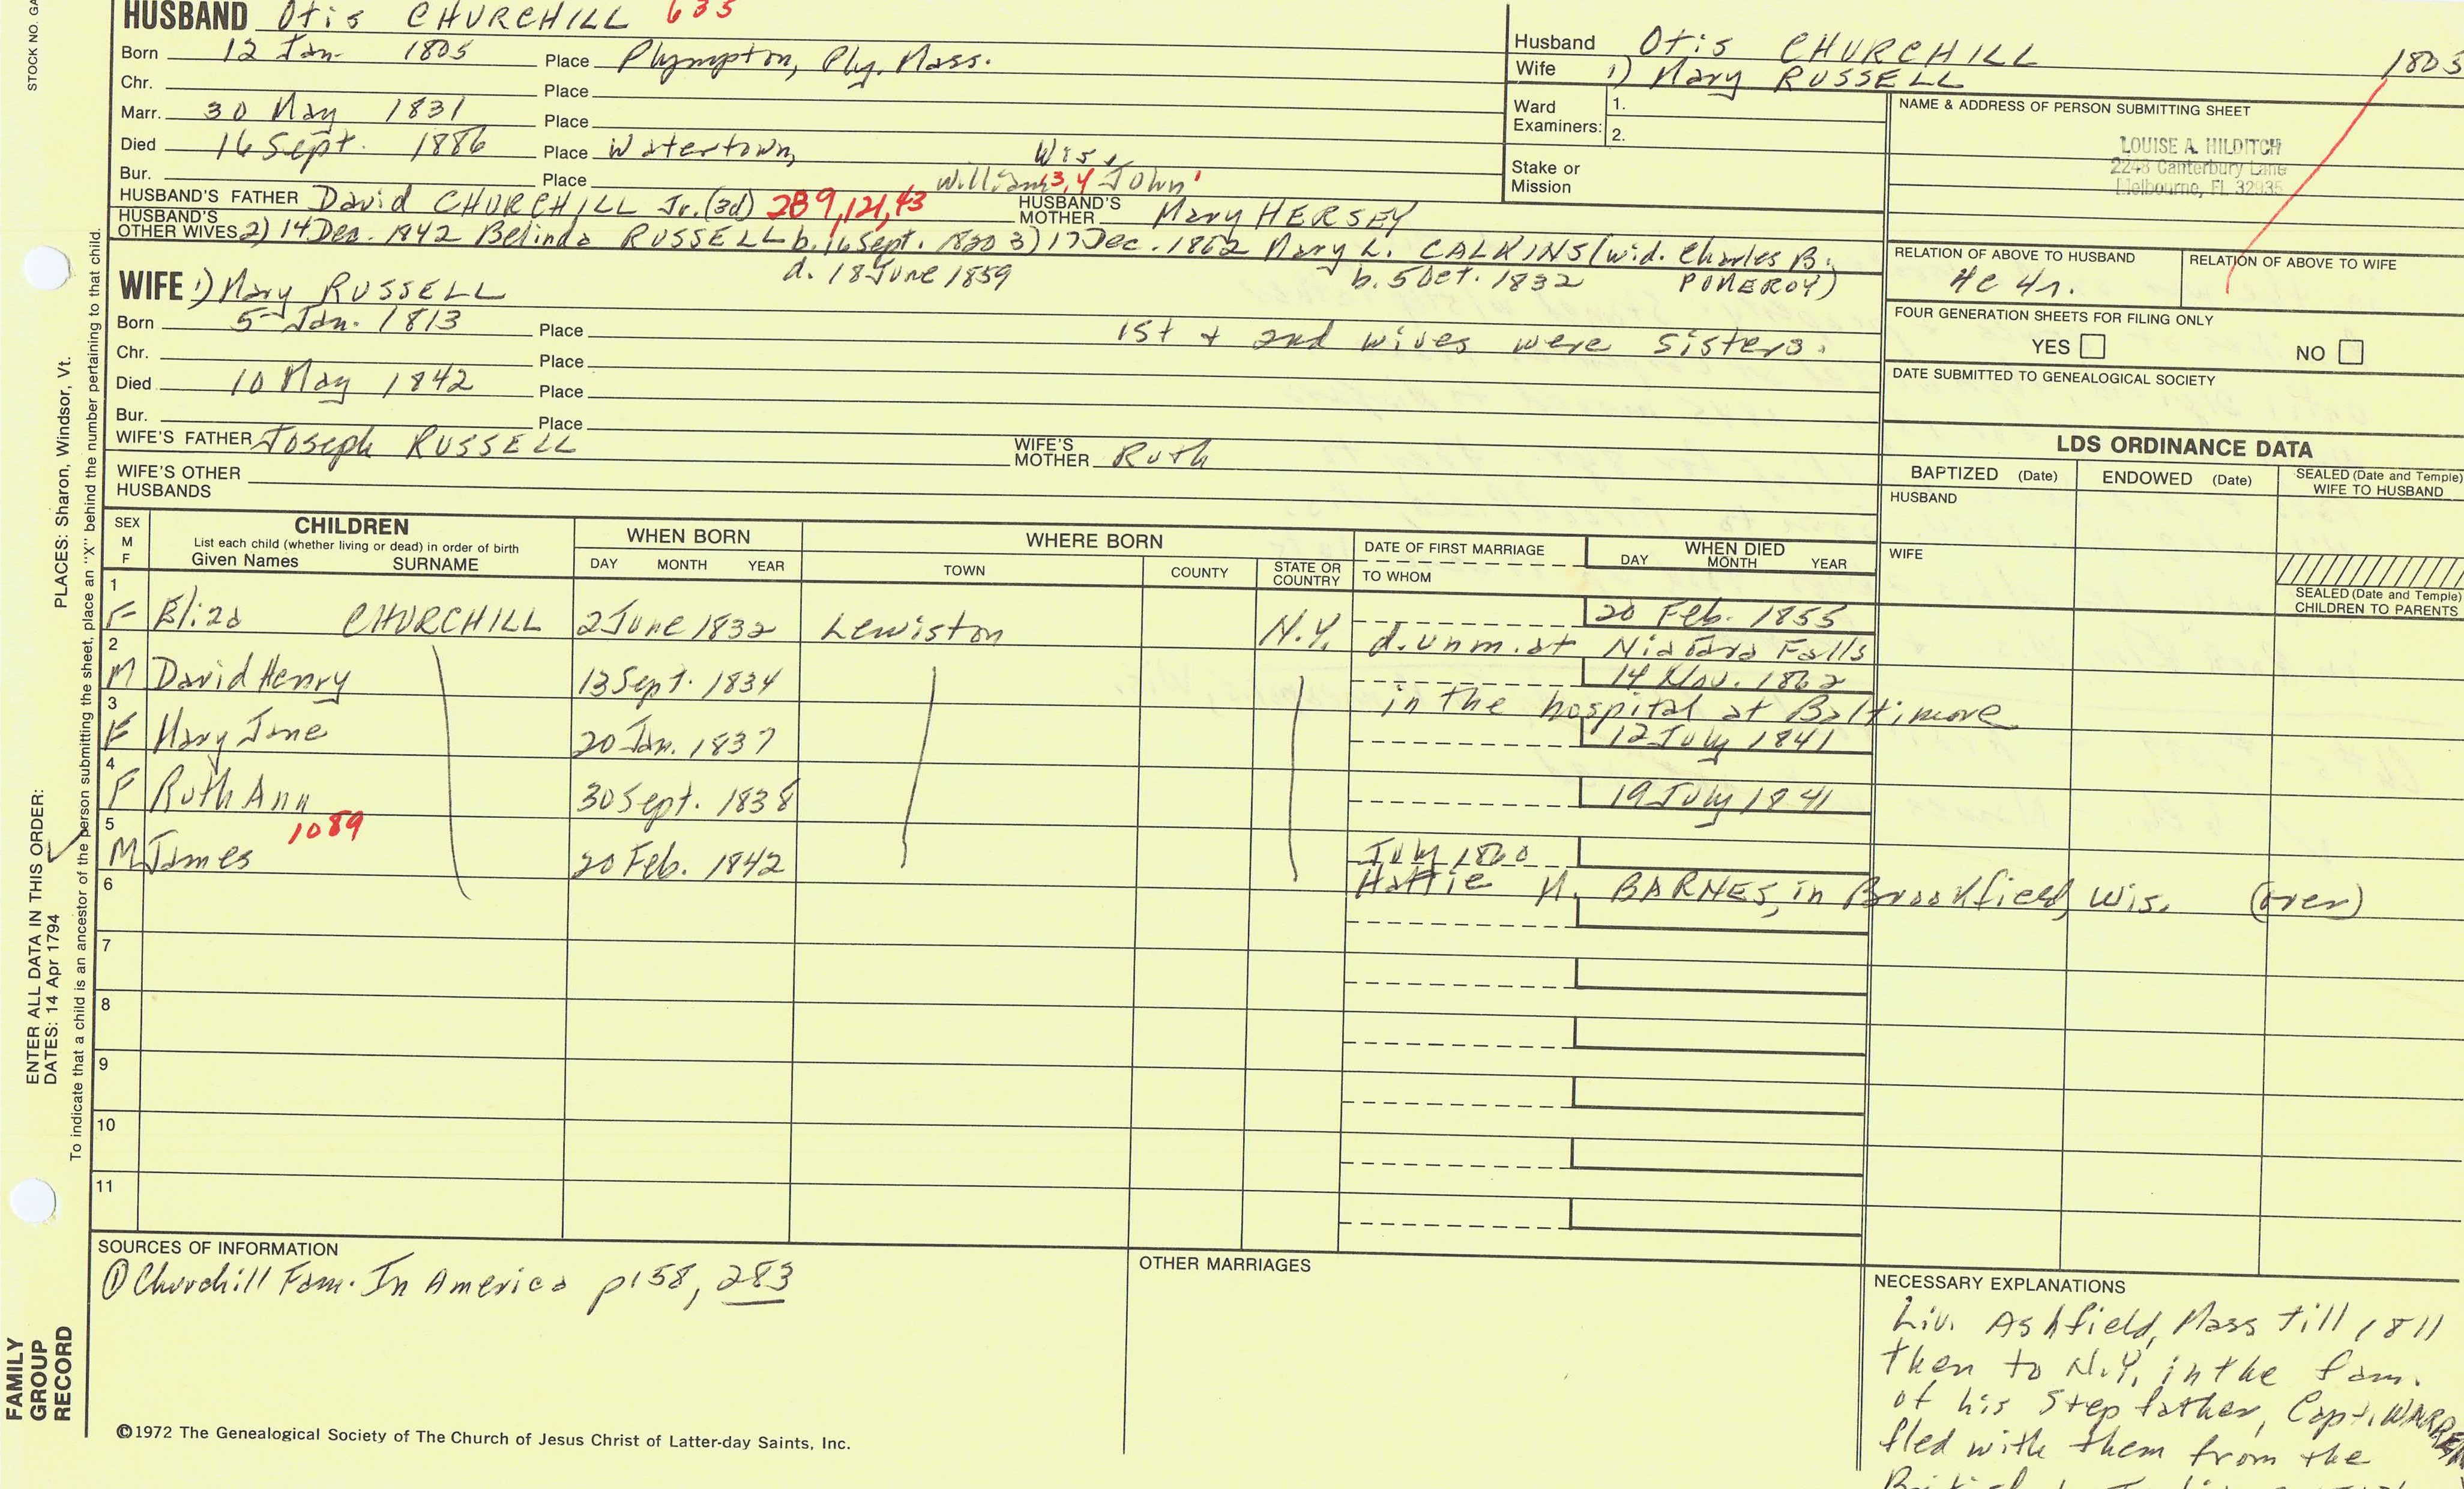 STOCK NO. GA
HUSBAND Otis CHURCHILL 635
Born 12 Jan. 1805 Place Plympton, Ply. Mass.
Chr. Place
Marr. 30 May 1831 Place
Died 16 Sept. 1886 Place Watertown, Wis.
Bur. Place William 3,4 John 1
HUSBAND'S FATHER David CHURCHILL Jr. (3d) 289, 121, 43 HUSBAND'S MOTHER Mary HERSEY
HUSBAND'S OTHER WIVES 2) 14 Dec. 1842 Belinda RUSSELL b. 16 Sept. 1820 3) 17 Dec. 1862 Mary L. CALKINS (wid. Charles B.
d. 18 June 1859 b. 5 Oct. 1832 POMEROY)
WIFE 1) Mary RUSSELL
Born 5 Jan. 1813 Place
1st + 2nd wives were sisters.
Chr. Place
Died 10 May 1842 Place
Bur. Place
WIFE'S FATHER Joseph RUSSELL WIFE'S MOTHER Ruth
WIFE'S OTHER HUSBANDS
Husband Otis CHURCHILL 1805
Wife 1) Mary RUSSELL
Ward Examiners: 1.
2.
Stake or Mission
NAME & ADDRESS OF PERSON SUBMITTING SHEET
LOUISE A. HILDITCH
2248 Canterbury Lane
Melbourne, FL 32935
RELATION OF ABOVE TO HUSBAND RELATION OF ABOVE TO WIFE
4c 4r.
FOUR GENERATION SHEETS FOR FILING ONLY
YES NO
DATE SUBMITTED TO GENEALOGICAL SOCIETY
LDS ORDINANCE DATA
BAPTIZED (Date) ENDOWED (Date) SEALED (Date and Temple) WIFE TO HUSBAND
HUSBAND
WIFE
SEALED (Date and Temple) CHILDREN TO PARENTS
SEX M F CHILDREN List each child (whether living or dead) in order of birth Given Names SURNAME WHEN BORN DAY MONTH YEAR WHERE BORN TOWN COUNTY STATE OR COUNTRY DATE OF FIRST MARRIAGE TO WHOM WHEN DIED DAY MONTH YEAR
1 F Eliza CHURCHILL 2 June 1832 Lewiston N.Y. 20 Feb. 1855
d. unm. at Niagara Falls
2 M David Henry 13 Sept. 1834 14 Nov. 1862
in the hospital at Baltimore
3 F Mary Jane 20 Jan. 1837 12 July 1841
4 F Ruth Ann 30 Sept. 1838 19 July 1841
5 M James 1089 20 Feb. 1842 July 1860
Hattie M. BARNES, in Brookfield, Wis. (over)
6
7
8
9
10
11
SOURCES OF INFORMATION
① Churchill Fam. In America p158, 283
OTHER MARRIAGES
NECESSARY EXPLANATIONS
Liv. Ashfield, Mass till 1811
then to N.Y. in the fam.
of his Step father, Capt. WARREN
fled with them from the
©1972 The Genealogical Society of The Church of Jesus Christ of Latter-day Saints, Inc.
FAMILY
GROUP
RECORD
ENTER ALL DATA IN THIS ORDER:
DATES: 14 Apr 1794
PLACES: Sharon, Windsor, Vt.
To indicate that a child is an ancestor of the person submitting the sheet, place an "X" behind the number pertaining to that child.